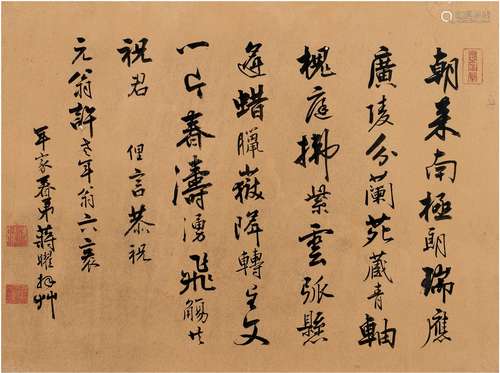 朝来南極朗瑞應
廣陵分蘭苑蔵青軸
槐庭擁紫雲弧懸
蜡臘嶽降轉生文
一片春濤湧飛觴共
祝君 俚言恭祝
元翁許老年翁六袠
年家眷弟蔣曜拜艸